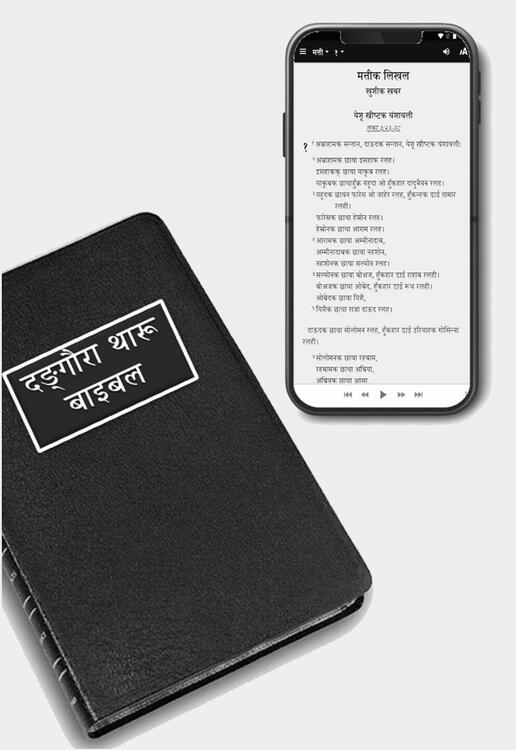 दङ्गौरा थारू
बाइबल
मत्ती १
मत्तीक लिखल
खुशीक खबर
येशू ख्रीष्टक वंशावली
लूका ३:२३-३८
१ १ अब्राहामक सन्तान, दाऊदक सन्तान, येशू ख्रीष्टक वंशावली:
२ अब्राहामक छावा इसहाक रलह।
इसहाकक् छावा याकूब रलह।
याकूबक छावाहुँक्र यहूदा ओ हुँकहार दादुभैयन रलह।
३ यहूदक छावन फारेस ओ जाहेर रलह, हुँकन्हक डाई तामार
रलही।
फारेसक छावा हेस्रोन रलह।
हेस्रोनक छावा आराम रलह।
४ आरामक छावा अम्मीनादाब,
अम्मीनादाबक छावा नहशोन,
नहशोनक छावा सल्मोन रलह।
५ सल्मोनक छावा बोअज, हुँकहार डाई राहाब रलही।
बोअजक छावा ओबेद, हुँकहार डाई रूथ रलही।
ओबेदक छावा यिशै,
६ यिशैक छावा राजा दाऊद रलह।
दाऊदक छावा सोलोमन रलह, हुँकहार डाई उरियाहक गोसिन्या
रलही।
७ सोलोमनक छावा रहबाम,
रहबामक छावा अबिया,
अबियक छावा आसा,